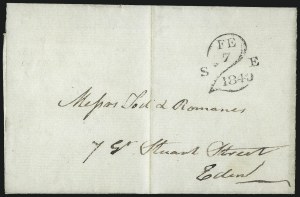 FE
7
S E
1840
Messrs Tod & Romanes
7 Gt Stuart Street
Edinr